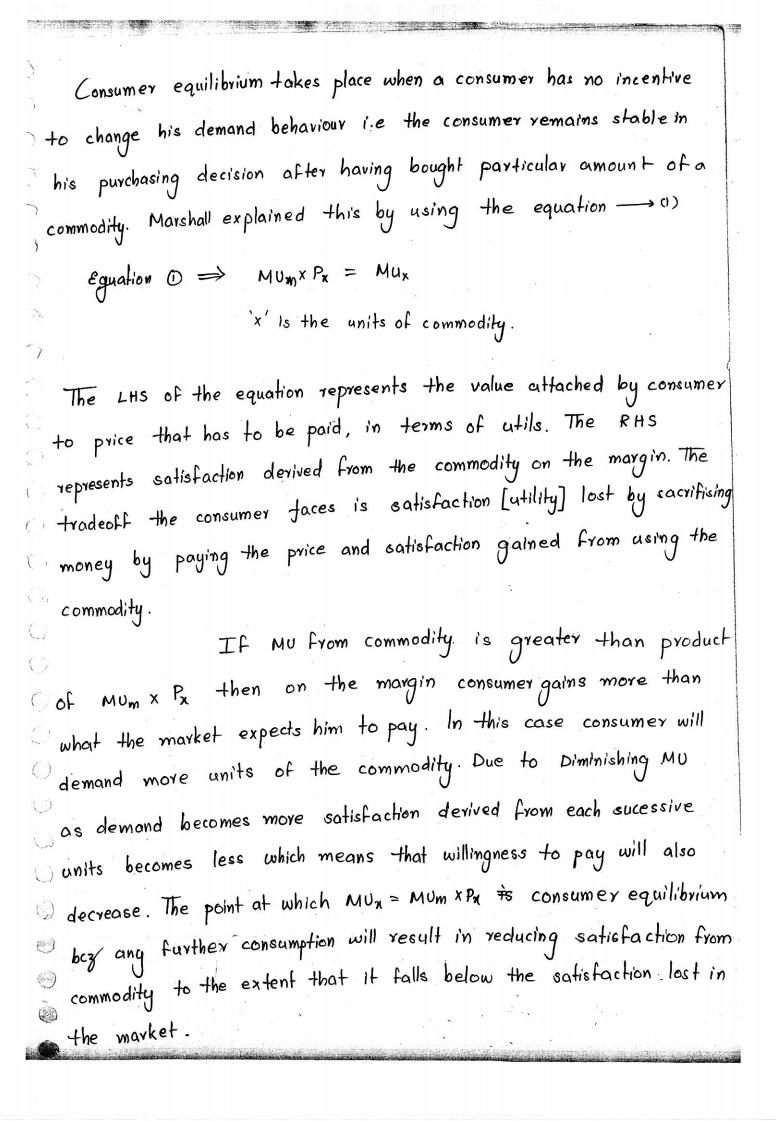 Consumer equilibrium takes place when a consumer has no incentive
to change his demand behaviour i.e the consumer remains stable in
his purchasing decision after having bought particular amount of a
commodity. Marshall explained this by using the equation ⟶ (1)
Equation ① ⟹ MUm x Px = MUx
'x' is the units of commodity.
The LHS of the equation represents the value attached by consumer
to price that has to be paid, in terms of utils. The RHS
represents satisfaction derived from the commodity on the margin. The
tradeoff the consumer faces is satisfaction [utility] lost by sacrifising
money by paying the price and satisfaction gained from using the
commodity.
If MU from commodity is greater than product
of MUm x Px then on the margin consumer gains more than
what the market expects him to pay. In this case consumer will
demand more units of the commodity. Due to Diminishing MU
as demand becomes more satisfaction derived from each sucessive
units becomes less which means that willingness to pay will also
decrease. The point at which MUx = MUm x Px is consumer equilibrium
bcz any further consumption will result in reducing satisfaction from
commodity to the extent that it falls below the satisfaction lost in
the market.